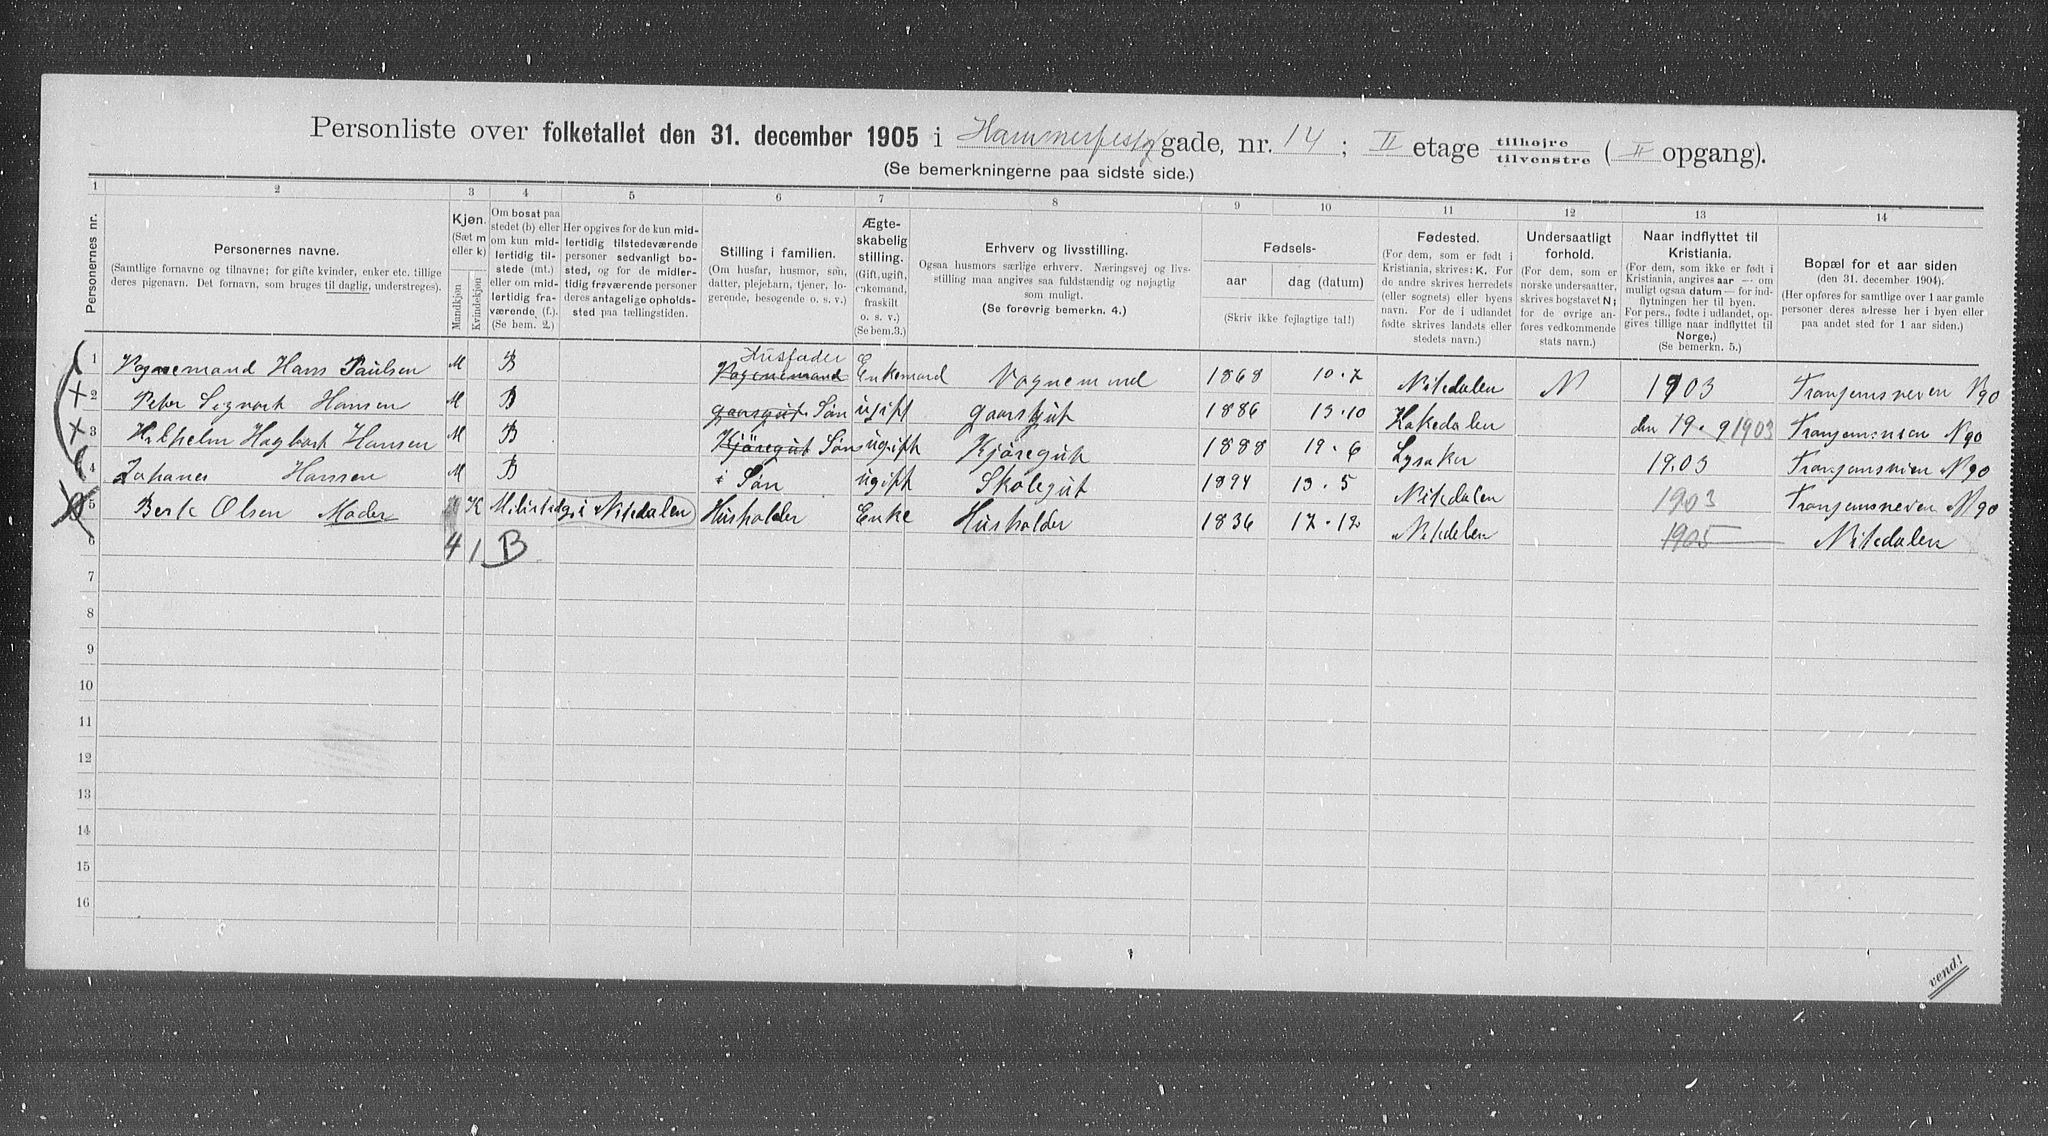 Personliste over folketallet den 31. december 1905 i Hammerfestg gade, nr. 14 ; II etage tilhøjre tilvenstre ( II opgang).
(Se bemerkningerne paa sidste side.)
1 2 3 4 5 6 7 8 9 10 11 12 13 14
Personernes nr.
Personernes navne.
(Samtlige fornavne og tilnavne; for gifte kvinder, enker etc. tillige
deres pigenavn. Det fornavn, som bruges til daglig, understreges).
Kjøn.
(Sæt m
eller k)
Mandkjøn
Kvindekjøn
Om bosat paa
stedet (b) eller
om kun mid-
lertidig til-
stede (mt.)
eller om mid-
lertidig fra-
værende (f.).
(Se bem. 2.)
Her opgives for de kun mid-
lertidig tilstedeværende
personer sedvanlig bo-
sted, og for de midler-
tidig fraværende personer
deres antagelige opholds-
sted paa tællingstiden.
Stilling i familien.
(Om husfar, husmor, søn,
datter, plejebarn, tjener, lo-
gerende, besøgende o. s. v.)
Ægte-
skabelig
stilling.
(Gift, ugift,
enkemand,
fraskilt
o. s. v.)
(Se bem.3.)
Erhverv og livsstilling.
Ogsaa husmors særlige erhverv. Næringsvej og livs-
stilling maa angives saa fuldstændig og nøjagtig
som muligt.
(Se forøvrig bemerkn. 4.)
Fødsels-
aar
dag (datum)
(Skriv ikke fejlagtige tal!!)
Fødested.
(For dem, som er født i
Kristiania, skrives: K. For
de andre skrives herredets
(eller sognets) eller byens
navn. For de i udlandet
fødte skrives landets eller
stedets navn.)
Undersaatligt
forhold.
(For dem, som er
norske undersaatter,
skrives bogstavet N;
for de øvrige an-
føres vedkommende
stats navn.)
Naar indflyttet til
Kristiania.
(For dem, som ikke er født i
Kristiania, angives aar — om
muligt ogsaa datum — for ind-
flytningen her til byen.
For pers., fødte i udlandet, op-
gives tillige naar indflyttet til
Norge.)
(Se bemerkn. 5.)
Bopæl for et aar siden
(den 31. december 1904).
(Her opføres for samtlige over 1 aar gamle
personer deres adresse her i byen eller
paa andet sted for 1 aar siden.)
1 Vognemand Hans Paulsen M B Husfader Vognemand Enkemand Vognemand 1868 10-7 Nitedalen N 1903 N 90
2 Peter Sigvart Hansen M B gaardsgut Søn ugift gaardgut 1886 13-10 Hakedalen den 19-9 1903 N 90
3 Hilhelm Hagbart Hansen M B Kjøregut Søn ugift Kjøregut 1888 19-6 Lysaker 1903 N 90
4 Johanes Hansen M B Søn ugift Skolegut 1894 13-5 Nitedalen 1903 N 90
5 Berte Olsen Moder K i Nitedalen Husholder Enke Husholder 1836 17-12 Nitedalen 1905 Nitedalen
6 4 1 B
7
8
9
10
11
12
13
14
15
16
vend!